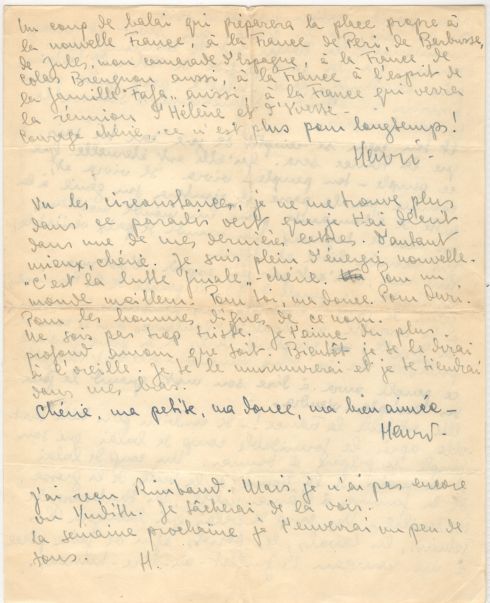 Un coup de balai qui préparera la place propre à
la nouvelle France, à la France de Péri, de Barbusse,
de Jules, mon camarade d'Espagne, à la France de
Colas Breugnon aussi, à la France à l'esprit de
la famille "Fafa" aussi, à la France qui verra
la réunion d'Hélène et d'Yvette.
Courage chérie, ce n'est plus pour longtemps!
Henri.
Vu les circonstances, je ne me trouve plus
dans ce paradis vert que je t'ai décrit
dans une de mes dernières lettres. D'autant
mieux, chérie. Je suis plein d'énergie nouvelle.
"C'est la lutte finale" chérie. Pour un
monde meilleur. Pour toi, ma douce. Pour
Pour les hommes dignes de ce nom.
Ne sois pas trop triste. Je t'aime du plus
profond amour que soit. Bientôt je te le dirai
à l'oreille. Je te le murmurerai et je te tiendrai
dans mes bras.
Chérie, ma petite, ma douce, ma bien aimée –
Henri.
J'ai vu Rimbaud. Mais je n'ai pas encore
vu Yudith. Je tâcherai de la voir.
La semaine prochaine je t'enverrai un peu de
sous. H.